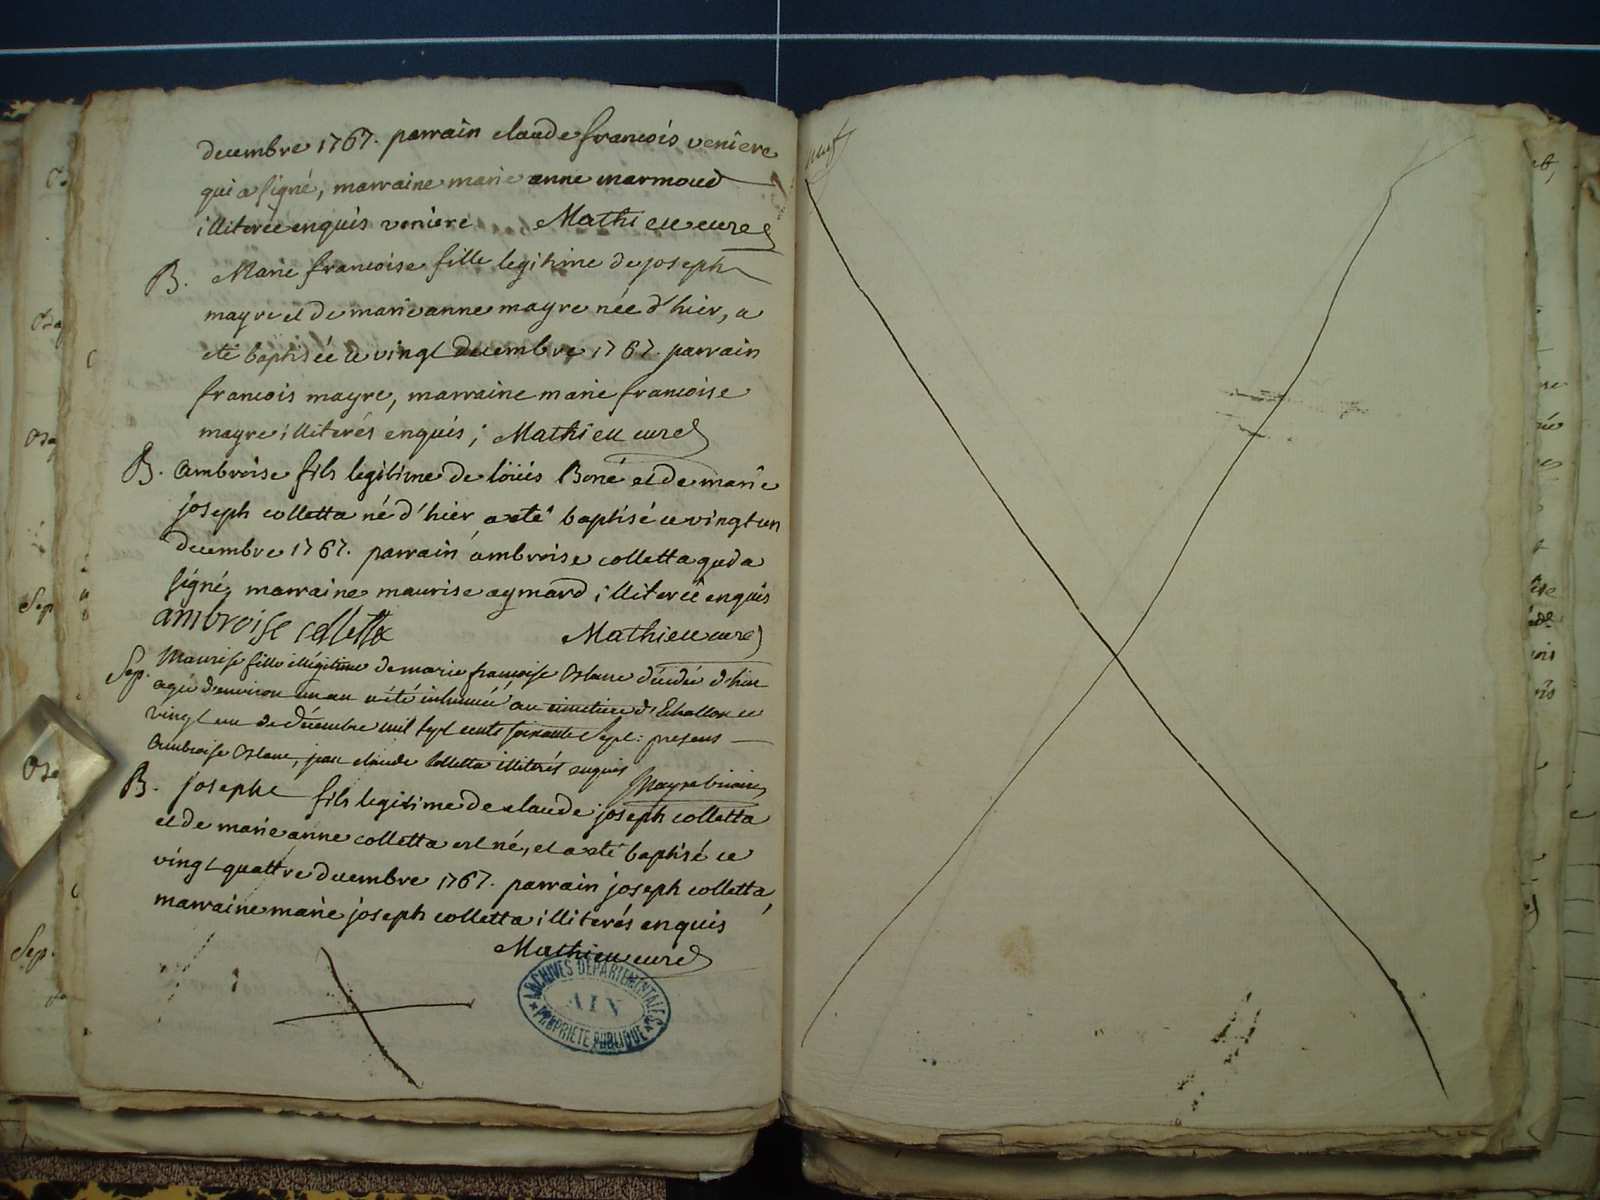 decembre 1767. parrain claude francois veniere
qui a signé, marraine marie anne marmoud
illiterée enquis veniere Mathieu curé
B. Marie francoise fille legitime de joseph
mayre et de marie anne mayre née d'hier, a
eté baptisée ce vingt decembre 1767. parrain
francois mayre, marraine marie francoise
mayre illiterés enquis; Mathieu curé
B. Ambroise fils legitime de loüis Boné et de marie
joseph colletta né d'hier a eté baptisé ce vingt un
decembre 1767. parrain ambroise colletta qui a
signé, marraine maurise aymard illiterée enquis
ambroise colletta Mathieu curé
Sep. Maurise fille illégitime de marie françoise décédée d'hier
agée d'environ un an a été inhumée au cimetiere d'Echallon ce
vingt un de décembre mil sept cents soixante sept: presens
Ambroise jean claude Colletta illiterés enquis
Mayre vicaire
B. josephe fils legitime de claude joseph colletta
et de marie anne colletta est né, et a eté baptisé ce
vingt quattre decembre 1767. parrain joseph colletta,
marraine marie joseph colletta illiterés enquis
Mathieu curé
ARCHIVES DÉPARTEMENTALES
AIN
PROPRIÉTÉ PUBLIQUE
Sep
Sep.